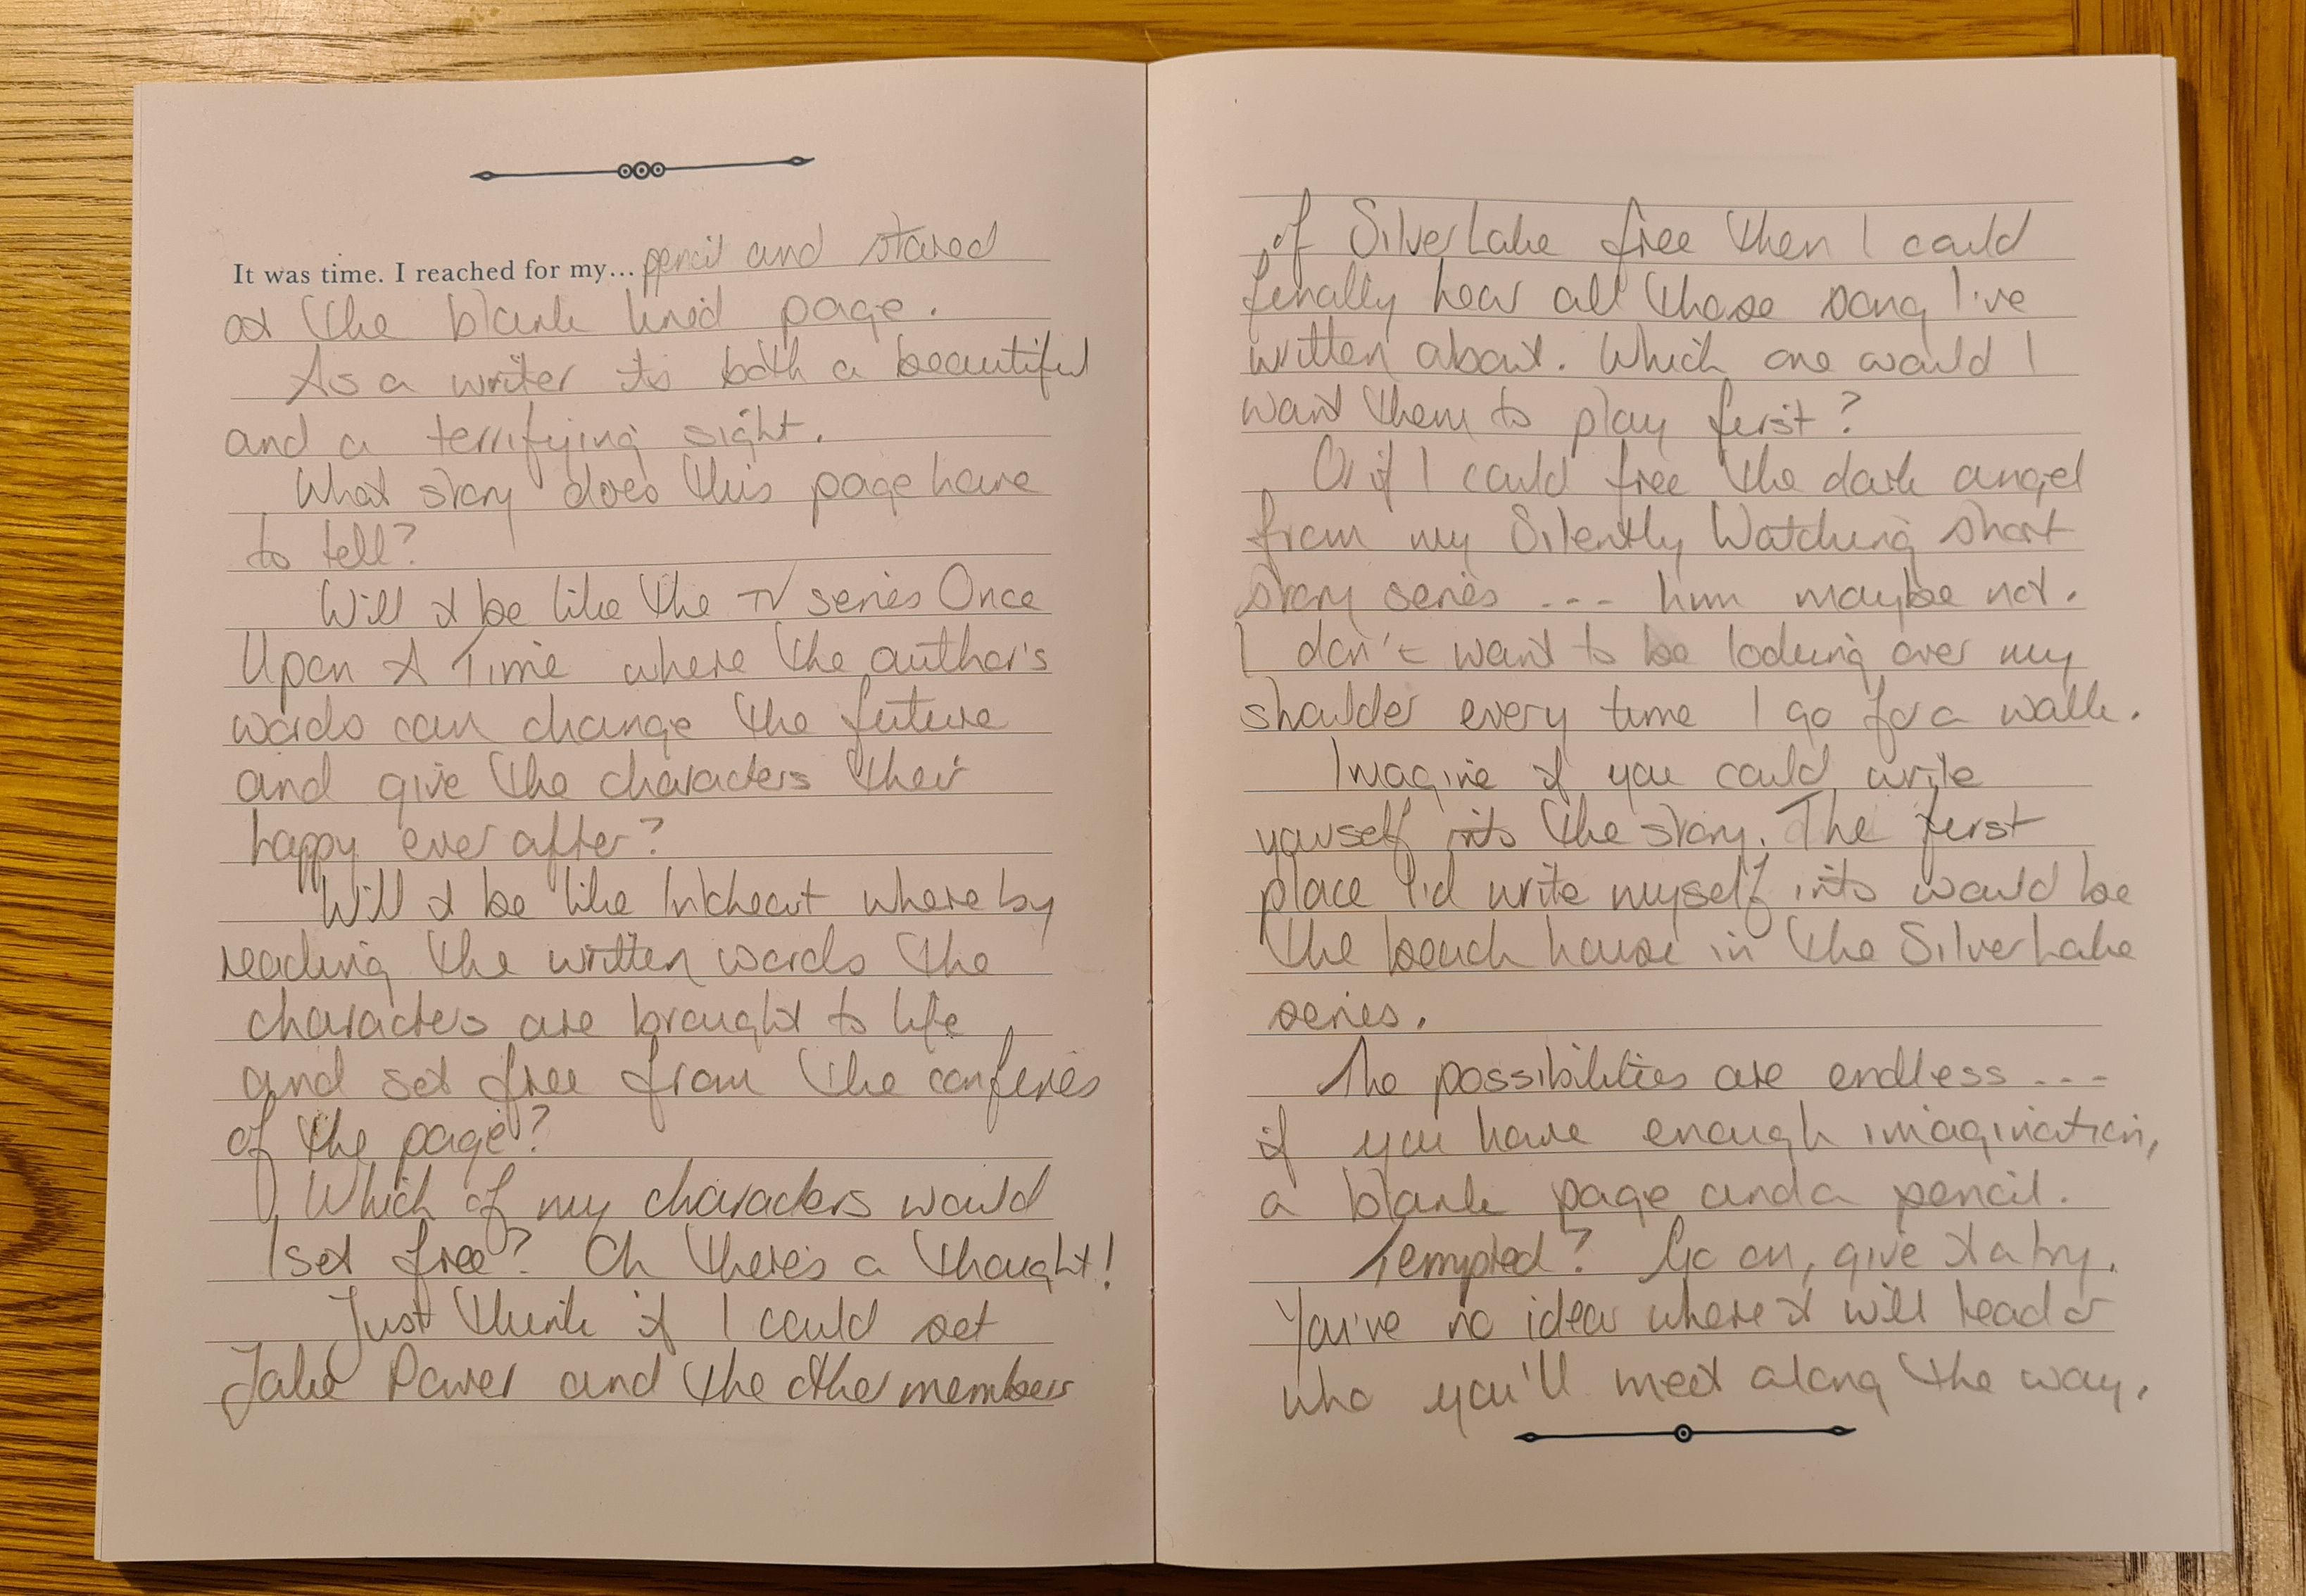 It was time. I reached for my... pencil and stared
at the blank lined page.
As a writer its both a beautiful
and a terrifying sight.
What story does this page have
to tell?
Will it be like the TV series Once
Upon A Time where the author's
words can change the future
and give the characters their
happy ever after?
Will it be like Inkheart where by
reading the written words the
characters are brought to life
and set free from the confines
of the page?
Which of my characters would
I set free? Oh there's a thought!
Just think if I could set
Jake Power and the other members
of Silver Lake free then I could
finally hear all those song I've
written about. Which one would I
want them to play first?
Or if I could free the dark angel
from my Silently Watching short
story series --- hmm maybe not.
I don't want to be looking over my
shoulder every time I go for a walk.
Imagine if you could write
yourself into the story. The first
place I'd write myself into would be
the beach house in the Silver Lake
series.
The possibilities are endless ---
if you have enough imagination,
a blank page and a pencil.
Tempted? Go on, give it a try.
You've no idea where it will lead or
who you'll meet along the way.